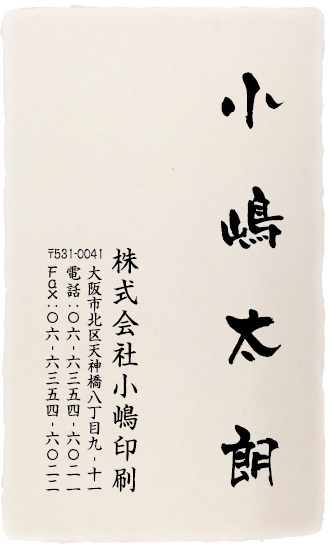 小嶋太朗
株式会社小嶋印刷
大阪市北区天神橋八丁目九-十一
電話:〇六-六三五四-六〇二一
Fax:〇六-六三五四-六〇二二
〒531-0041